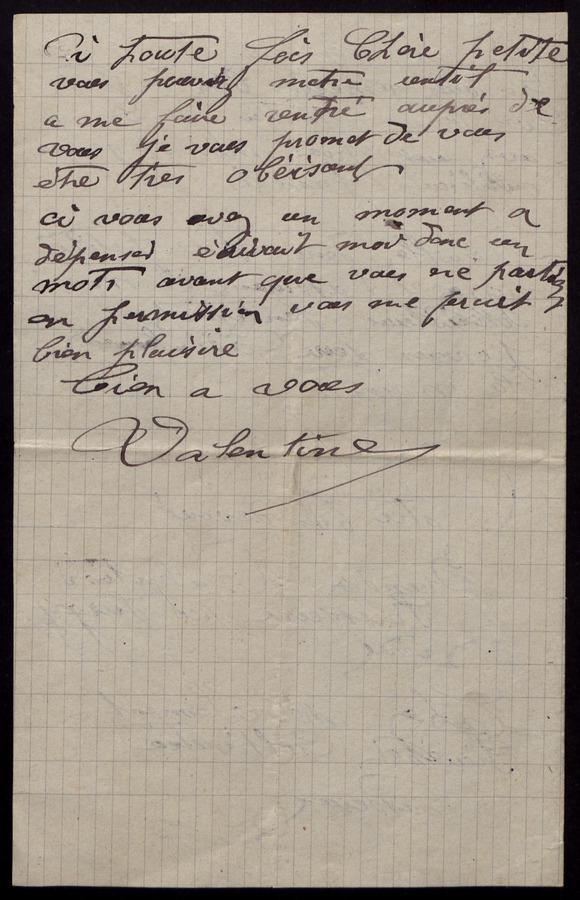 Si toute fois Chère petite
vous pouvez metre
a me faire rentré auprés de
vous je vous promet de vous
etre tres obéisant
ci vous avez un moment a
dépenser écrivait moi donc un
mots avant que vous ne partiez
en permission vous me feruit
bien plaisire
bien a vous
Valentine